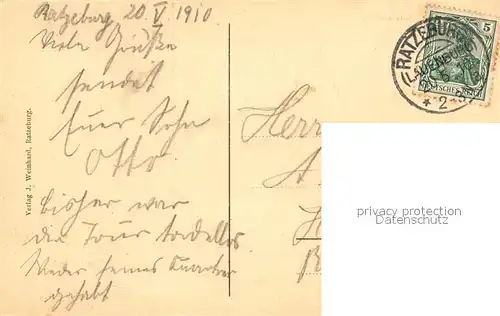 Ratzeburg 20 V 1910
Viele Grüße
sendet
Euer Sohn
Otto.
Bisher war
die Tour tadellos
Weder seines
gehabt
Verlag J. Weinhard, Ratzeburg.
Herr
RATZEBURG
(LAUENBURG)
* 2
5
DEUTSCHES REICH
privacy protection
Datenschutz